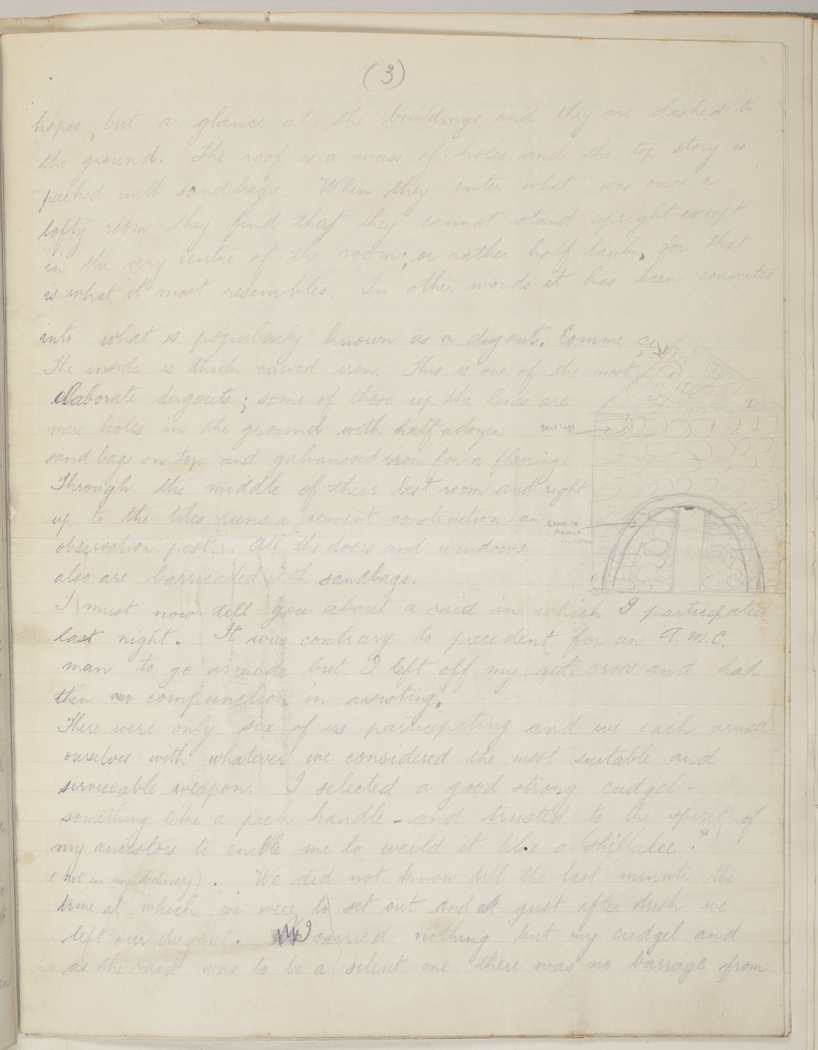 (3)
hopes, but a glance at the buildings and they are dashed to
the ground. The roof is a mass of holes and the top story is
packed with sandbags. When they enter what was once a
lofty room they find that they cannot stand upright except
in the very centre of the room; or rather half tank, for that
is what it most resembles. In other words it has been converted
into what is popularly known as a dugout. Comme ça
The inside is thick curved iron. This is one of the most
elaborate dugouts; some of those up the lines are
mere holes in the ground with half a dozen
sandbags on top and galvanised iron for a flooring.
Through the middle of their best room and right
up to the tiles runs a cement construction an
observation post. All the doors and windows
also are barricaded with sandbags.
I must now tell you about a raid in which I participated
last night. It was contrary to precedent for an A.M.C.
man to go armed but I left off my red cross and had
then no compunction in assisting.
There were only six of us participating and we each armed
ourselves with whatever we considered the most suitable and
serviceable weapon. I selected a good strong cudgel -
something like a pick handle - and trusted to the spirit of
my ancestors to enable me to weild it like a shillalee."?
(not in my dictionary). We did not know till the last minute the
time at which we were to set out and just after dusk we
left our dugout. I carried nothing but my cudgel and
as the raid was to be a silent one there was no barrage from